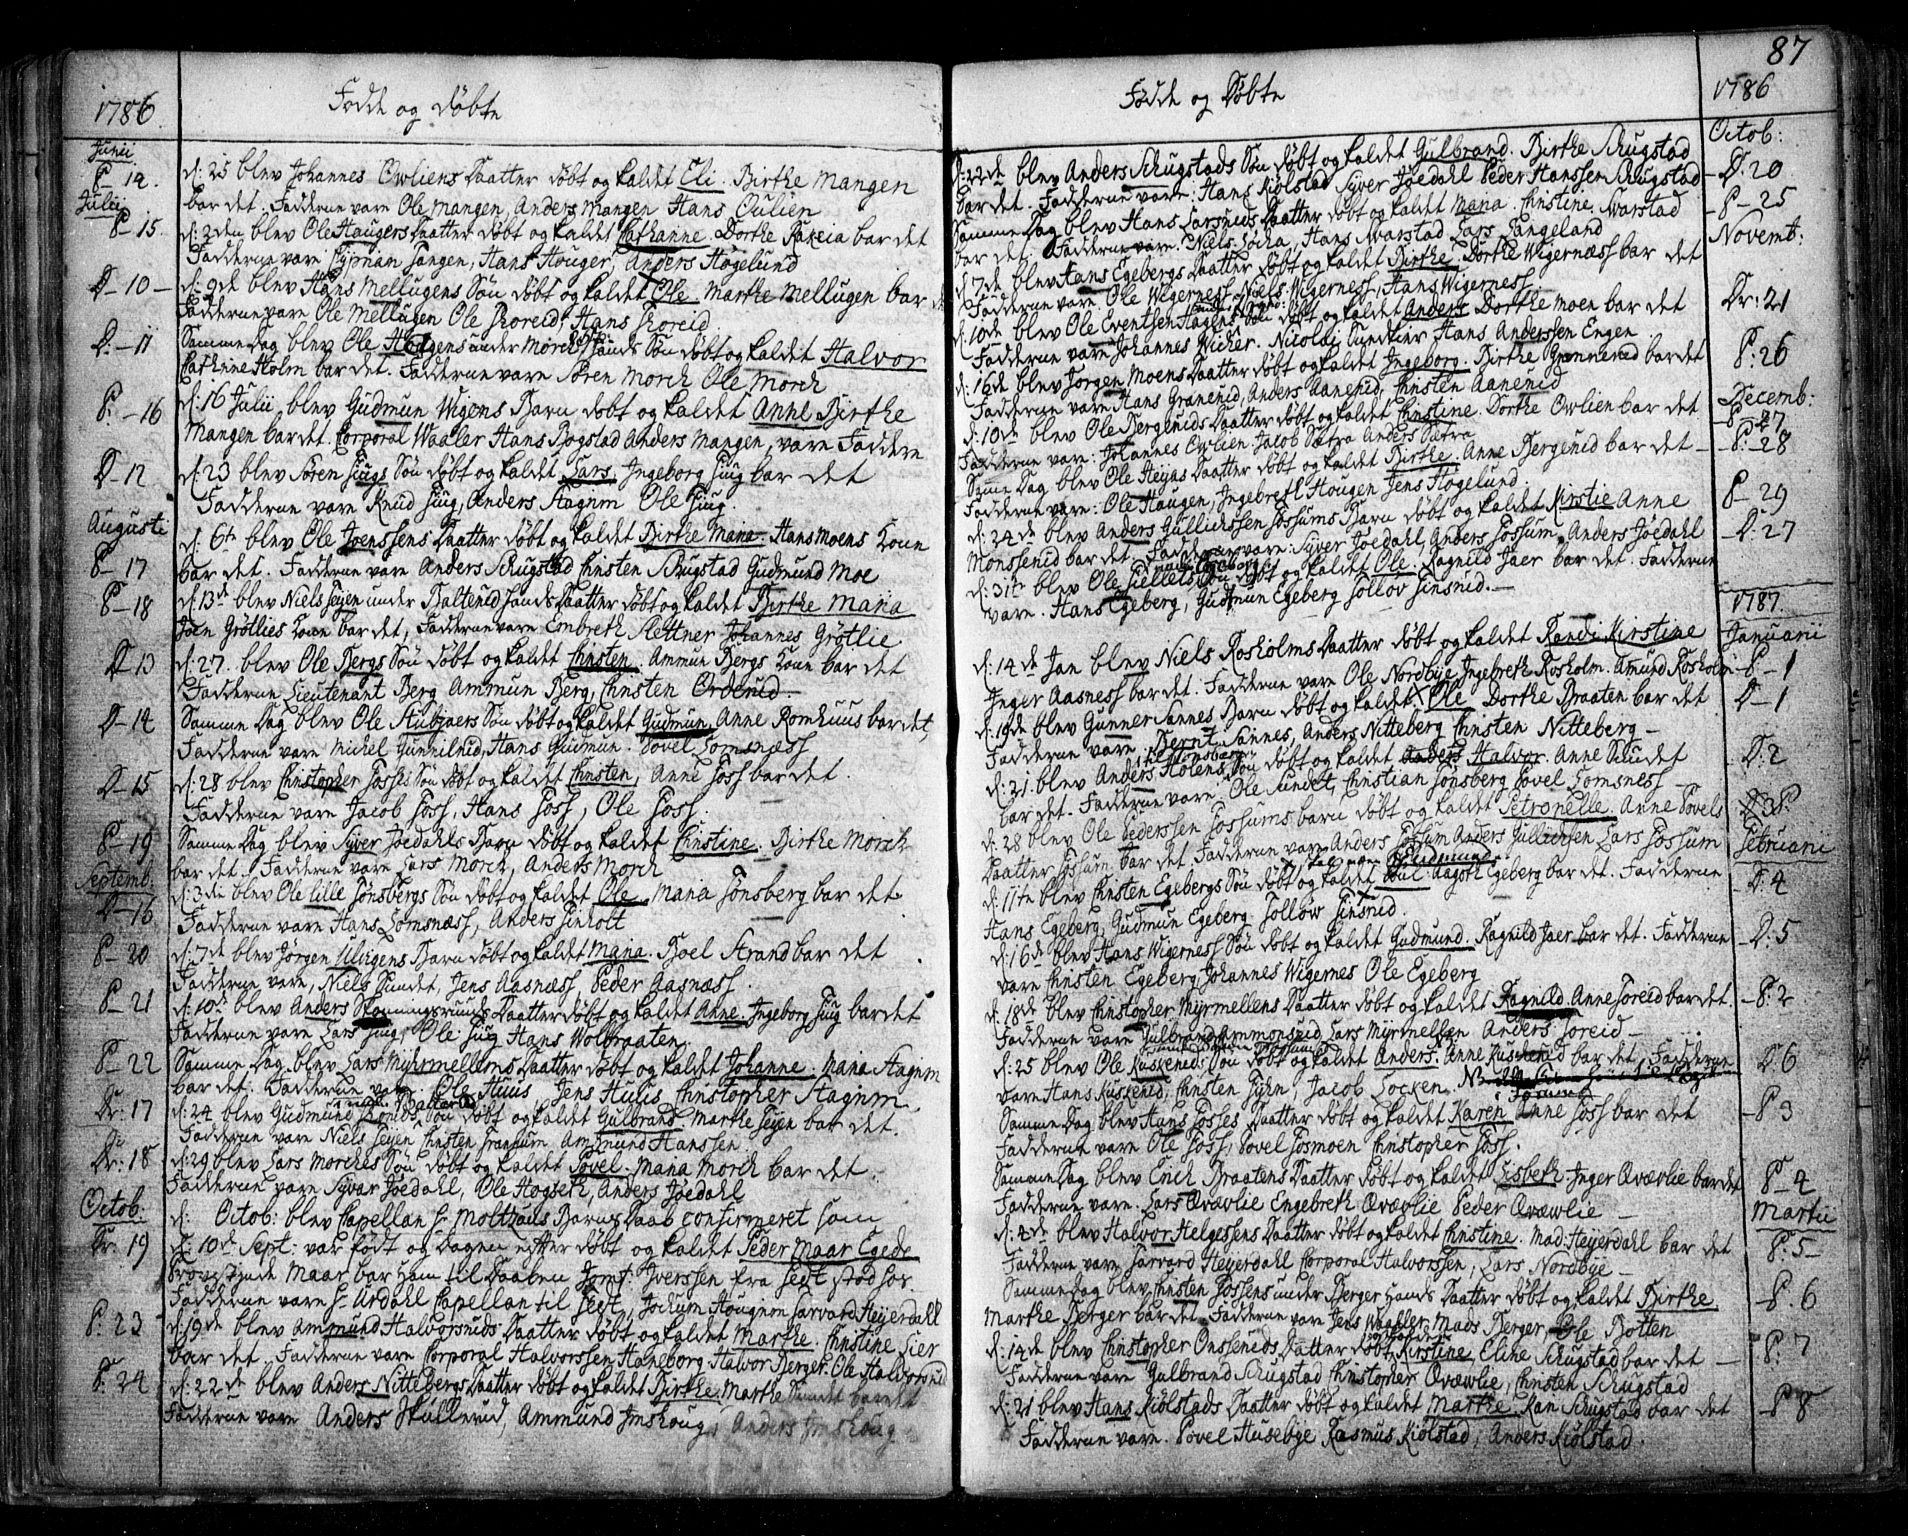 1786
Fødde og døbte
Junii
P- 14.
d: 25 blev Johannes Owliens Daatter døbt og kaldet Eli. Birthe Mangen
bar det. Fadderne vare Ole Mangen, Anders Mangen Hans Oulien
Julii
P- 15.
d: 2den blev Ole Haugers Daatter døbt og kaldet Cathanne. Dorthe bar det
Fadderne vare Hans Houger, Anders Høgelund
D- 10 -
d: 9de blev Hans Mellugens Søn døbt og kaldet Ole. Marthe Mellugen bar det
Fadderne vare Ole Mellugen Ole Skoreid, Hans Skoreid.
D. - 11
Samme Dag blev Ole under Morch Søn døbt og kaldet Halvor
Cathrine Holm bar det. Fadderne vare Søren Morch Ole Morch
P. - 16
d: 16 Julii blev Gudmun Wigens Barn døbt og kaldet Anne Birthe
Mangen bar det. Corporal Waaler Hans Bogstad Anders Mangen, vare Faddere
D- 12
d: 23 blev Søren Juugs Søn døbt og kaldet Lars. Ingeborg Juug bar det
Fadderne vare Knud Juug, Anders Hagnm Ole Juug.
Augusti
P- 17
d. 6te blev Ole Joenssens Daatter døbt og kaldet Birthe Maria. Hans Moens Kone
bar det. Fadderne vare Anders Schugstad Christen Schugstad Gudmund Moe
P- 18
d: 13de blev Niels under Baltenud Daatter døbt og kaldet Birthe Maria
Joen Grøtlies Kone bar det, Fadderne vare Embreth Slettner Johannes Grøtlie
D- 13
d: 27. blev Ole Bergs Søn døbt og kaldet Christen. Ammun Bergs Kone bar det
Fadderne Lieutenant Berg Ammun Berg, Christen Ordenud.
D- 14
Samme Dag blev Ole Stubjaers Søn døbt og kaldet Gudmun, Anne Romhuus bar det,
Fadderne vare Michel Gunnilrud, Hans Gudmun. Povel Tomsnæss
D- 15
d: 28 blev Christopher Fosses Søn døbt og kaldet Christen, Anne Foss bar det.
Fadderne vare Jacob Foss, Hans Foss, Ole Foss.
P- 19
Samme Dag blev Syver Joedahls Barn døbt og kaldet Christine. Birthe Morck
bar det. Fadderne vare Lars Morck, Anders Morch
Septemb:
D- 16
d: 3die blev Ole lille Tønsbergs Søn døbt og kaldet Ole. Maria Tønsberg bar det
Fadderne vare Hans Tomsnæss, Anders Sinholt
P- 20
d: 7de blev Jørgen Uligens Barn døbt og kaldet Maria. Boel Strand bar det
Fadderne vare, Niels Sundet, Jens Aasnæss, Peder Aasnæss.
P- 21
d: 10de blev Anders Daatter døbt og kaldet Anne. Ingeborg Juug bar det
Fadderne vare Lars Juug, Ole Juug Hans Wolbraaten.
P- 22
Samme Dag blev Lars Myhrmellems Daatter døbt og kaldet Johanne. Maria Hagnm
bar det. Fadderne vare. Ole Huus, Jens Huus Christopher Hagnm
Dr: 17
d: 24 blev Gudmund Søn døbt og kaldet Gulbrand Marthe bar det.
Fadderne vare Niels Christen Ammund Hanssen
Dr: 18
d: 29 blev Lars Morches Søn døbt og kaldet Povel. Maria Morch bar det
Fadderne vare Syvar Joedahl, Ole Høgseth, Anders Joedahl
Octob:
Dr: 19
d: Octob: blev Capellan Hr Moltzaus Barns Daab confirmeret som
d. 10de Sept: var født og Dagen efter døbt og kaldet Peder Maar Egede
Provstinde Maar bar ham til Daaben Jomf: Jverssen fra Fegt stod hos
Fadderne vare Hr Urdahl Capellan til Fegt, Jochum Hougnm Harvard Heyerdahl
P. 23
d: 19de blev Ammund Halvorsruds Daatter døbt og kaldet Marthe. Christine Lier
bar det. Fadderne vare Corporal Halvorssen, Haneborg Halvor Berger. Ole Halvorsrud
P. 24
d: 22de blev Anders Nittebergs Daatter døbt og kaldet Birthe. Marthe Sundet bar det
Fadderne vare Anders Skullerud, Ammund Imshoug, Anders Imshoug
87
Fødde og Døbte
1786
Octob:
d: 22de blev Anders Schugstads Søn døbt og kaldet Gulbrand. Birthe Schugstad
- D. 20
bar det. Fadderne vare: Hans Kiølstad Syver Joedahl Peder Hanssen Schugstad
Samme Dag blev Hans Larsruds Daatter døbt og kaldet Maria. Christine Svarstad
- P- 25
bar det. Fadderne vare. Niels Hans Svarstad Lars Langeland
Novemb:
d. 7de blev Hans Egebergs Daatter døbt og kaldet Birthe. Dorthe Wigernæss bar det
Fadderne vare. Ole Wigerness, Niels Wigerness, Hans Wigerness.
d: 10de blev Ole Eventsen Søn døbt og kaldet Anders Dorthe Moen bar det
Dr: 21
Fadderne vare Johannes Nicolai Hans Anderssen Engen
d: 16de blev Jørgen Moens Daatter døbt og kaldet Ingeborg. Birthe Grønnerud bar det
P: 26
Fadderne vare Hans Granerud, Anders Aanerud, Christen Aanerud
Decemb:
d: 10de blev Ole Bergeruds Daatter døbt og kaldet Christine. Dorthe Owlien bar det
- P- 27
Fadderne vare: Johannes Owlien Jacob Sætra Anders Sætra
Samme Dag blev Ole Heyas Daatter døbt og kaldet Birthe. Anne Bergerud bar det -
- P: 28
Fadderne vare: Ole Haugen, Ingebreth Hougen Jens Høgelund.
d: 24de blev Anders Gullichssen Fossums Barn døbt og kaldet Kirstie Anne
P- 29
Monsserud bar det. Fadderne vare: Syver Joedahl, Anders Fossum. Anders Joedahl
- D: 27
d: 31te blev Ole Søn døbt og kaldet Ole. Ragnild Jaer bar det. Fadderne
vare. Hans Egeberg, Gudmun Egeberg Tollov Sinsrud. -
1787.
Januarii
d: 14de Jan blev Niels Rosholms Daatter døbt og kaldet Randi Kirstine
- P- 1
Inger Aasness bar det. Fadderne vare Ole Nordbye, Ingebreth Rosholm. Amund Rosholm
d: 19de blev Gunner Sannes Barn døbt og kaldet Ole Dorthe Braaten bar det
D- 1
Fadderne vare. Bernt Sannes, Anders Nitteberg Christen Nitteberg -
d: 21 blev Anders Holens Søn døbt og kaldet Halvor. Anne Sundet
D: 2
bar det. Fadderne vare: Ole Sundet, Christian Tønsberg Povel Tomsness
d: 28 blev Ole Pederssen Fossums barn døbt og kaldet Petronelle. Anne Povels
Daatter Fossum bar det Fadderne vare Anders Fossum Anders Gullichsen Lars Fossum
Februarii
d: 11te blev Christen Egebergs Søn døbt og kaldet Aagoth Egeberg bar det. Fadderne
- D: 4
Hans Egeberg, Gudmun Egeberg Tollow Sinsrud.
d: 16de blev Hans Wigerness Søn døbt og kaldet Gudmund. Ragnild Jaer bar det. Fadderne
- D: 5
vare Christen Egeberg, Johannes Wigernes Ole Egeberg
d: 18de blev Christopher Myrmellens Daatter døbt og kaldet Ragnild. Anne Toreid bar det.
- P: 2
Fadderne vare Gulbrand Ammonsrud, Lars Myrmellen Anders Toreid -
d: 25 blev Ole Kuskeruds Søn døbt og kaldet Anders. Anne Kuskerud bar det. Fadderne
D: 6
vare Hans Kuskerud, Christen Jacob N:B
Samme Dag blev Hans Fosses Daatter døbt og kaldet Karen Anne Foss bar det
- P 3
Fadderne vare Ole Foss, Povel Fosmoen Christopher Foss.
Samme Dag blev Erich Braatens Daatter døbt og kaldet Lisbeth. Inger Qvævlie bar det
P- 4
Fadderne vare: Lars Qvævlie Engebreth Qvævlie Peder Qvæwlie -
Martii
d: 4de blev Halvor Helgessens Daatter døbt og kaldet Christine. Mad: Heyerdahl bar det
P: 5 -
Fadderne vare Harvard Heyerdahl Corporal Halvorssen, Lars Nordbye -
Samme Dag blev Christen Fossens under Berger Daatter døbt og kaldet Birthe
- P. 6
Marthe Berger bar det. Fadderne vare Jens Mads Berger, Ole Botten
d: 14de blev Christopher Onsseruds Datter døbt Kirstine, Eline Schugstad bar det -
P: 7
Fadderne vare Gulbrand Schugstad Christopher Qvæwlie, Christen Schugstad
d: 21 blev Hans Kiølstads Daatter døbt og kaldet Marthe. Kari Schugstad bar det
- P 8
Fadderne vare. Povel Husebye Rasmus Kiølstad, Anders Kiølstad.